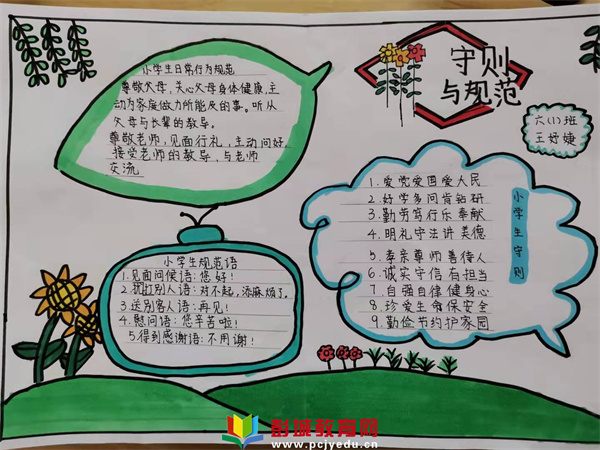 守则
与规范
六(1)班
王妤婕
小学生日常行为规范
尊敬父母,关心父母身体健康,主
动为家庭做力所能及的事。听从
父母与长辈的教导。
尊敬老师,见面行礼,主动问好,
接受老师的教导,与老师
交流
小学生规范语
1.见面问候语:您好!
2.打扰别人语:对不起,添麻烦了。
3.送别客人语:再见!
4.慰问语:您辛苦啦!
5.得到感谢语:不用谢!
小学生守则
1.爱党爱国爱人民
2.好学多问肯钻研
3.勤劳笃行乐奉献
4.明礼守法讲美德
5.孝亲尊师善待人
6.诚实守信有担当
7.自强自律健身心
8.珍爱生命保安全
9.勤俭节约护家园
彭城教育网
www.pcjyedu.cn